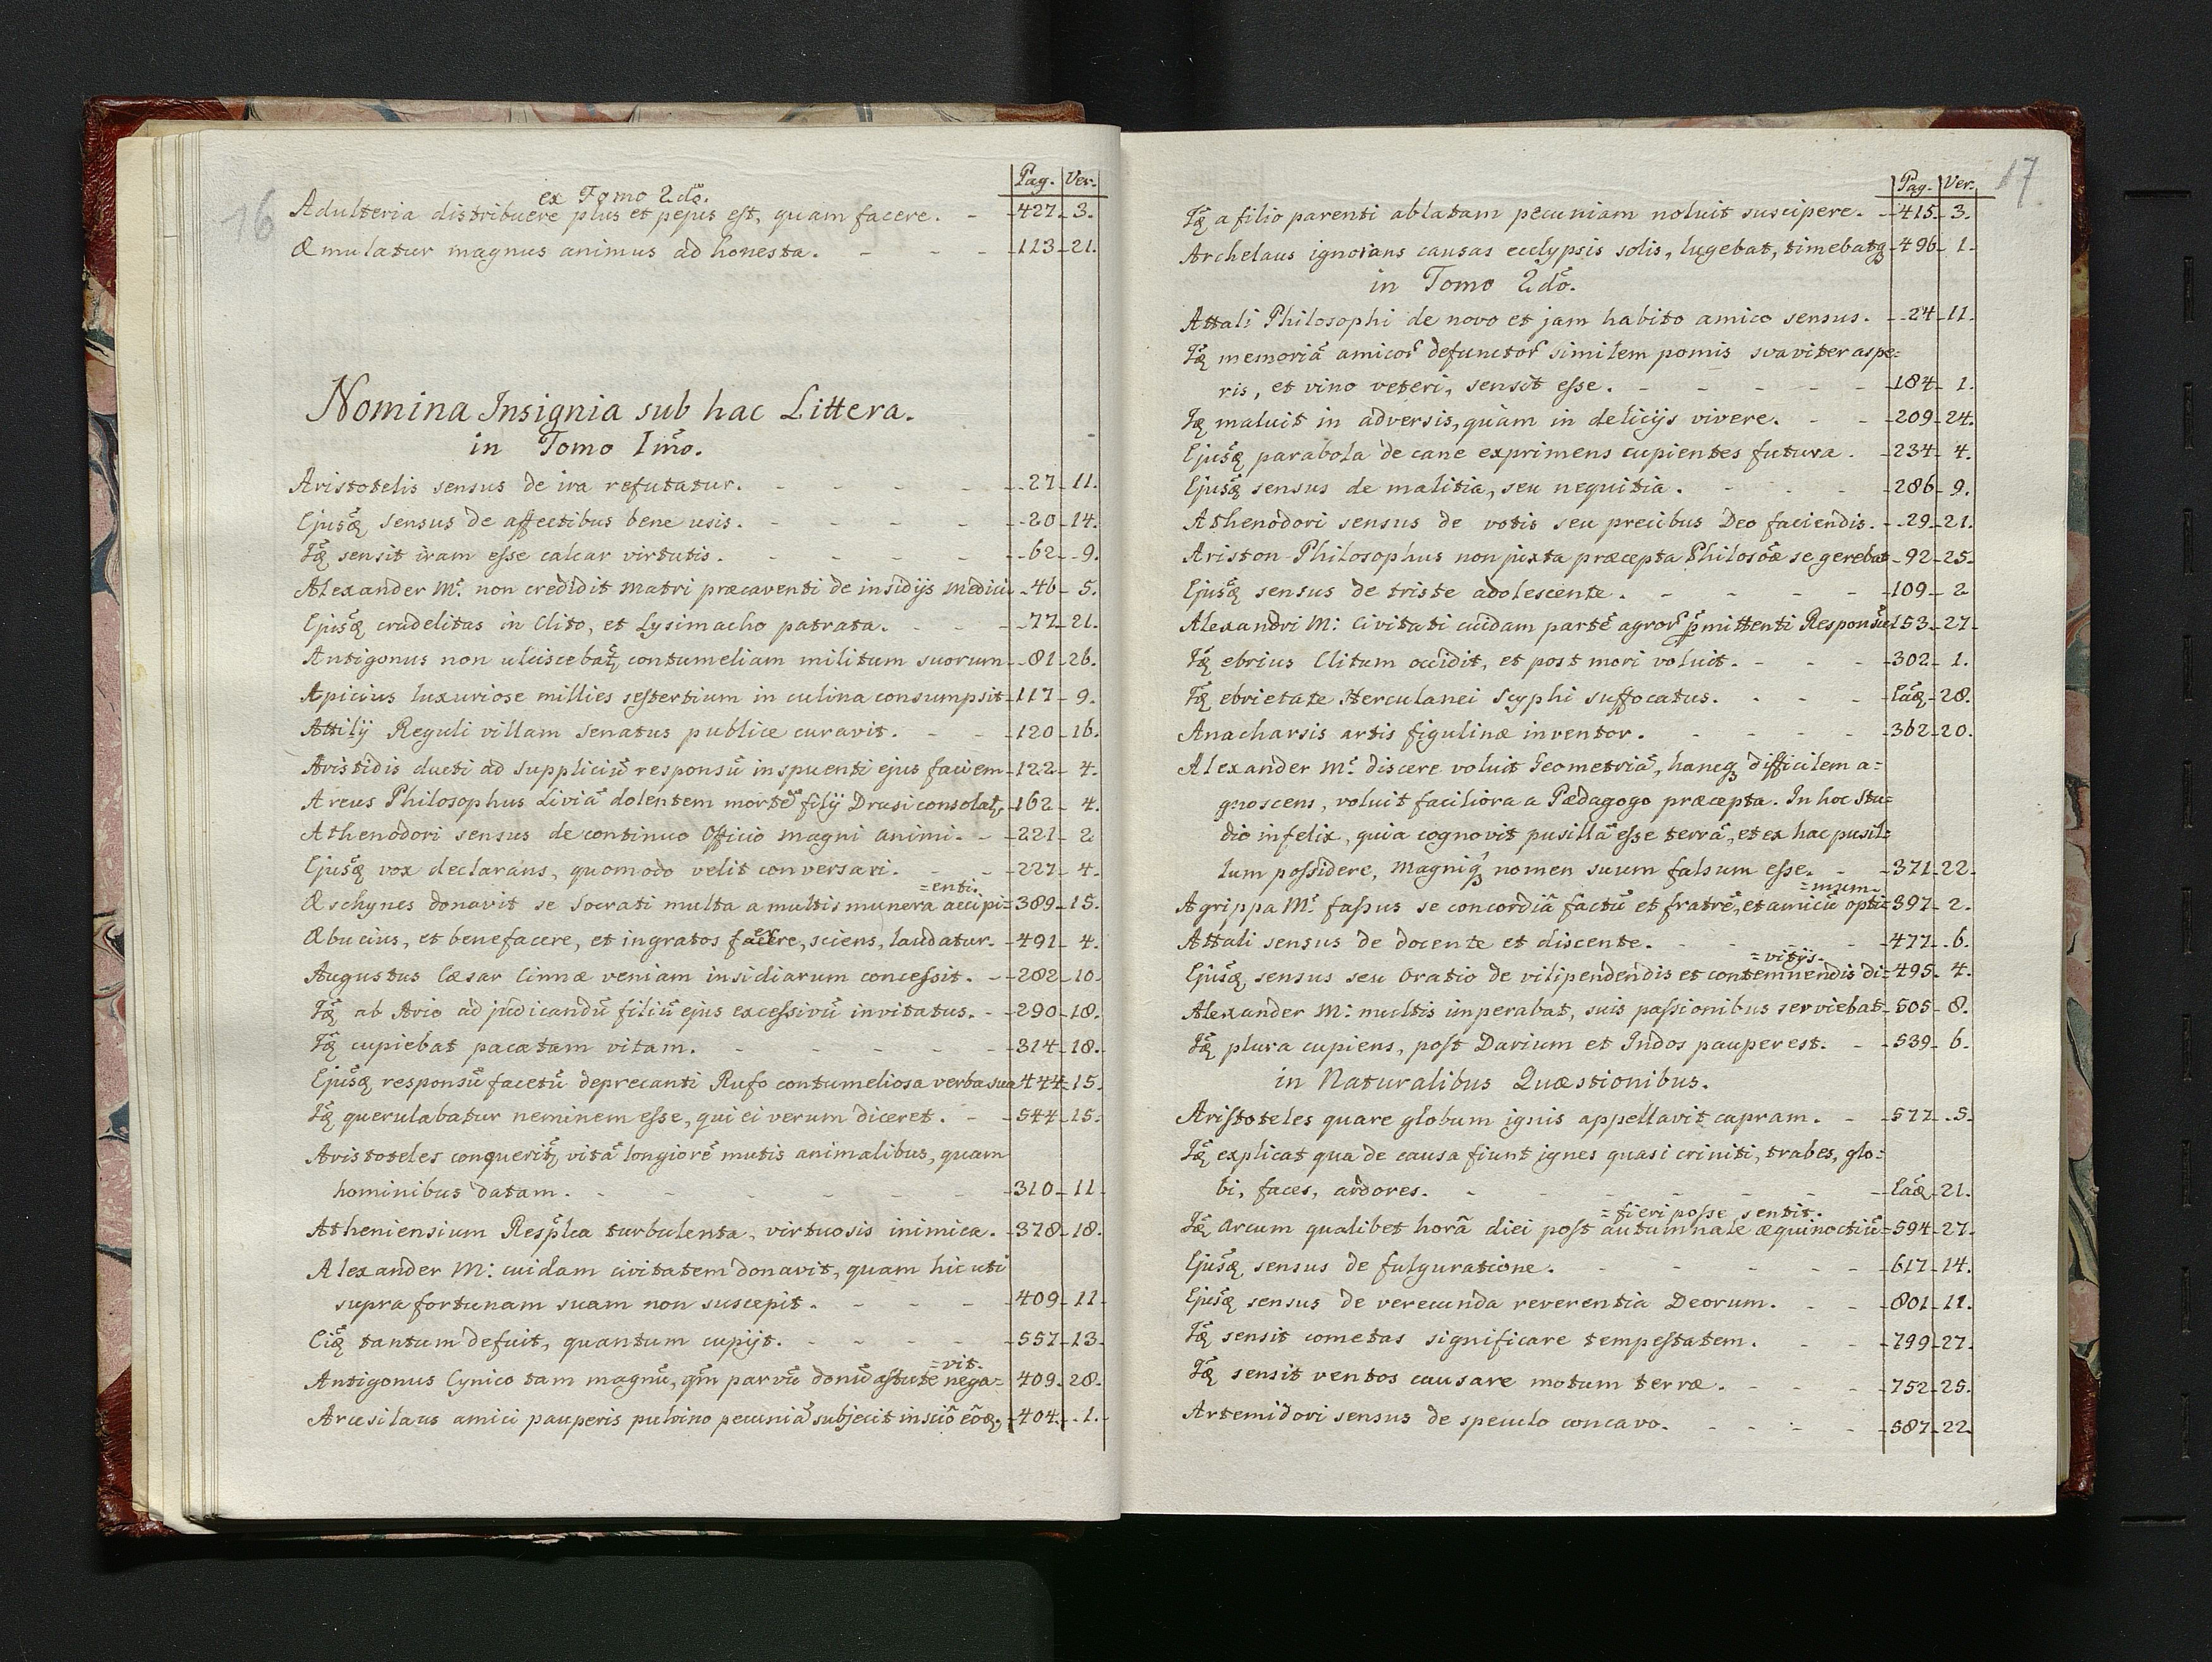 16
Pag. Ver.
ex Tomo 2dõ.
Adulteria distribuere plus et pejus est, quam facere. - 427. 3.
Æmulatur magnus animus ad honesta. - - - 113. 21.
Nomina Insignia sub hac Littera.
in Tomo Imõ.
Aristotelis sensus de ira refutatur. - - - - 27. 11.
Ejusq̃ sensus de affectibus bene usis. - - - - 20. 14.
Iq̃ sensit iram esse calcar virtutis. - - - - 62. 9.
Alexander M: non credidit matri præcaventi de insidijs medici 46. 5.
Ejusq̃ crudelitas in Clito, et Lysimacho patrata. - - - 77. 21.
Antigonus non ulciscebat̃ contumeliam militum suorum 81. 26.
Apicius luxuriose millies sestertium in culina consumpsit 117. 9.
Attilij Reguli villam Senatus publice curavit. - - - 120. 16.
Aristidis ducti ad suppliciũ responsũ inspuenti ejus faciem 122. 4.
Areus Philosophus Liviã dolentem mortẽ filij Drusi consolat̃ 162. 4.
Athenodori sensus de continuo Officio magni animi. - 221. 2
Ejusq̃ vox declarans, quomodo velit conversari. - - 227. 4.
=enti.
Æschynes donavit se Socrati multa a multis munera accipi= 389. 15.
Æbucius, et benefacere, et ingratos facere, sciens, laudatur. 491. 4.
Augustus Cæsar Cinnæ veniam insidiarum concessit. - 282. 10.
Iq̃ ab Ario ad judicandũ filiũ ejus excessivũ invitatus. - 290. 18.
Iq̃ cupiebat pacatam vitam. - - - - - 314. 18.
Ejusq̃ responsũ facetũ deprecanti Rufo contumeliosa verba sua 444. 15.
Iq̃ querulabatur neminem esse, qui ei verum diceret. - 544. 15.
Aristoteles conquerit̃ vitã longiorẽ mutis animalibus, quam
hominibus datam. - - - - - - 310. 11.
Atheniensium Resp̃lca turbulenta, virtuosis inimica. 378. 18.
Alexander M: cuidam civitatem donavit, quam hic uti
supra fortunam suam non suscepit. - - - - 409. 11.
Eiq̃ tantum defuit, quantum cupijt. - - - - 557. 13.
=vit.
Antigonus Cynico tam magnũ, q̃m parvũ donũ astute nega= 409. 28.
Arcesilaus amici pauperis pulvino pecuniã subjecit insciõ eõq̃ 404. 1.
17
Pag. Ver.
Iq̃ a filio parenti ablatam pecuniam noluit suscipere. - 415. 3.
Archelaus ignorans causas ecclypsis solis, lugebat, timebatq̃ 496. 1.
in Tomo 2dõ.
Attali Philosophi de novo et jam habito amico sensus. 24. 11.
Iq̃ memoriã amicor̃ defunctor̃ similem pomis svaviter aspe=
ris, et vino veteri, sensit esse. - - - - - 184. 1.
Iq̃ maluit in adversis, quam in delicijs vivere. - - 209. 24.
Ejusq̃ parabola de cane exprimens cupientes futura. - 234. 4.
Ejusq̃ sensus de malitia, seu nequitia. - - - 286. 9.
Athenodori sensus de votis seu precibus Deo faciendis. 29. 21.
Ariston Philosophus non juxta præcepta Philosõæ se gerebat 92. 25.
Ejusq̃ sensus de triste adolescente. - - - - 109. 2
Alexandri M: Civitati cuidam partẽ agror̃ p̃mittenti Responsũ 153. 27.
Iq̃ ebrius Clitum occidit, et post mori voluit. - - - 302. 1.
Iq̃ ebrietate Herculanei Scyphi suffocatus. - - - Eãq̃ 28.
Anacharsis artis figulinæ inventor. - - - - 362. 20.
Alexander M: discere voluit Geometriã, hancq̃ difficilem a=
gnoscens, voluit faciliora a Pædagogo præcepta. In hoc stu=
dio infelix, quia cognovit pusillã esse terrã, et ex hac pusil=
lum possidere, Magniq̃ nomen suum falsum esse. - 371. 22.
=mum.
Agrippa M: fassus se concordiã factũ et fratrẽ, et amicũ opti= 397. 2.
Attali sensus de docente et discente. - - - - 477. 6.
=vitijs.
Ejusq̃ sensus seu Oratio de vilipendendis et contemnendis di= 495. 4.
Alexander M: multis imperabat, suis passionibus serviebat 505. 8.
Iq̃ plura cupiens, post Darium et Indos pauper est. - 539. 6.
in Naturalibus Quæstionibus.
Aristoteles quare globum ignis appellavit capram. - 577. 5.
Iq̃ explicat qua de causa fiunt ignes quasi criniti, trabes, glo=
bi, faces, ardores. - - - - - - Eãq̃ 21.
=fieri posse sentit.
Iq̃ Arcum qualibet horã diei post autumnale æquinoctiũ= 594. 27.
Ejusq̃ sensus de fulguratione. - - - - - 617. 14.
Ejusq̃ sensus de verecunda reverentia Deorum. - - 801. 11.
Iq̃ sensit cometas significare tempestatem. - - 799. 27.
Iq̃ sensit ventos causare motum terræ. - - - 752. 25.
Artemidori sensus de speculo concavo. - - - - 587. 22.